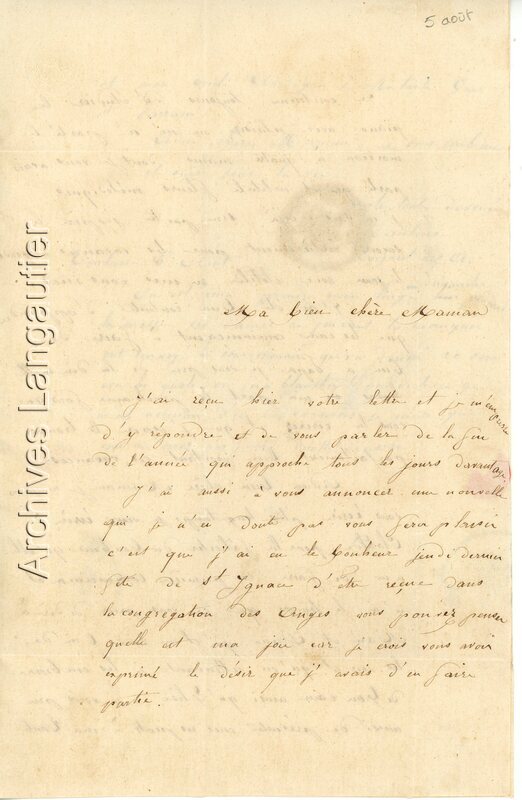 5 août
Ma bien chère Maman
J'ai reçu hier votre lettre et je m'empresse
d'y répondre et de vous parler de la fin
de l'année qui approche tous les jours davantage
J'ai aussi à vous annoncer une nouvelle
qui je n'en doute pas vous fera plaisir
c'est que j'ai eu le bonheur jeudi dernier
fête de St Ignace d'être reçue dans
la congrégation des Anges vous pouvez penser
quelle est ma joie car je crois vous avoir
exprimé le désir que j'avais d'en faire
partie.
Archives Langautier